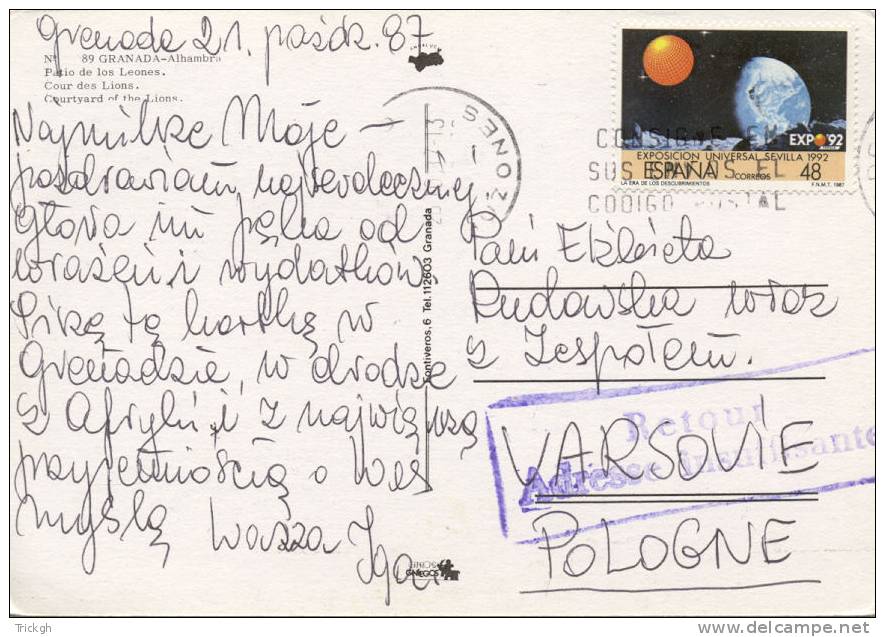 Grenada 21. paźdz. 87
Nº 89 GRANADA-Alhambra
Patio de los Leones.
Cour des Lions.
Courtyard of the Lions.
Najmilsze Moje –
pozdrawiam najserdeczniej
Głowa mi pęka od
wrażeń i wydatków.
Piszę tę kartkę w
Grenadzie, w drodze
z Afryki i z największą
przyjemnością o Was
myślę
Wasza Iga
Fontiveros, 6 Tel. 112603 Granada
EXPO'92
EXPOSICION UNIVERSAL SEVILLA 1992
ESPAÑA CORREOS 48
LA ERA DE LOS DESCUBRIMIENTOS F.N.M.T. 1987
CONSIGNE EN
SUS ENVIOS EL
CODIGO POSTAL
Pani Elżbieta
Rudowska wraz
z Zespołem.
Retour
Adresse insuffisante
VARSOVIE
POLOGNE
GALLEGOS
Trickgh
www.delcampe.net